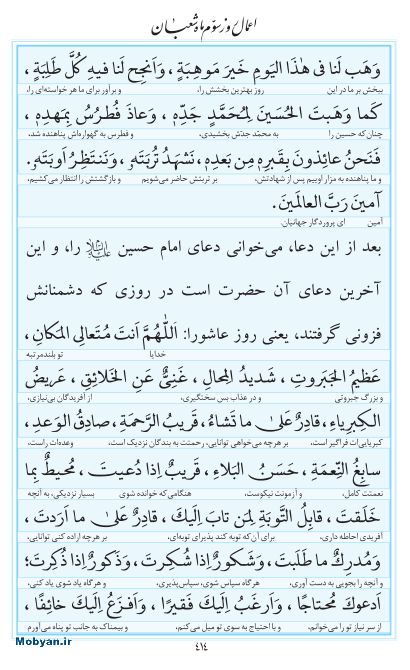 اعمال روز سوّم ماه شعبان
وَهَب لَنا فی هٰذَا الیَومِ خَیرَ مَوهِبَةٍ ، وَاَنجِح لَنا فیهِ کُلَّ طَلِبَةٍ ،
ببخش بر ما در این روز بهترین بخشش را، و برآور برای ما هر خواسته‌ای را،
کَما وَهَبتَ الحُسَینَ لِمُحَمَّدٍ جَدِّهِ ، وَعاذَ فُطرُسُ بِمَهدِهِ ،
چنان که حسین را به محمّد جدّش بخشیدی، و فطرس به گهواره‌اش پناهنده شد،
فَنَحنُ عائِذونَ بِقَبرِهِ مِن بَعدِهِ ، نَشهَدُ تُربَتَهُ ، وَنَنتَظِرُ اَوبَتَهُ .
و ما پناهنده به مزار اوییم پس از شهادتش، بر تربتش حاضر می‌شویم و بازگشتش را انتظار می‌کشیم،
آمینَ رَبَّ العالَمینَ.
آمین ای پروردگار جهانیان.
بعد از این دعا، می‌خوانی دعای امام حسین علیه‌السلام را، و این
آخرین دعای آن حضرت است در روزی که دشمنانش
فزونی گرفتند، یعنی روز عاشورا: اَللّٰهُمَّ اَنتَ مُتَعالِی المَکانِ ،
خدایا تو بلندمرتبه
عَظیمُ الجَبَروتِ ، شَدیدُ المِحالِ ، غَنِیٌّ عَنِ الخَلائِقِ ، عَریضُ
و بزرگ جبروتی و در عذاب بس سختگیری، از آفریدگان بی‌نیازی،
الکِبرِیاءِ ، قادِرٌ عَلیٰ ما تَشاءُ ، قَریبُ الرَّحمَةِ ، صادِقُ الوَعدِ ،
کبریایی‌ات فراگیر است، بر هرچه می‌خواهی توانایی، رحمتت به بندگان نزدیک است، وعده‌ات راست،
سابِغُ النِّعمَةِ ، حَسَنُ البَلاءِ ، قَریبٌ اِذا دُعیتَ ، مُحیطٌ بِما
نعمتت کامل، و آزمونت نیکوست، هنگامی که خوانده شوی بسیار نزدیکی، به آنچه
خَلَقتَ ، قابِلُ التَّوبَةِ لِمَن تابَ اِلَیکَ ، قادِرٌ عَلیٰ ما اَرَدتَ ،
آفریدی احاطه داری، برای آن که توبه کند پذیرای توبه‌ای، بر هرچه اراده کنی توانایی،
وَمُدرِکٌ ما طَلَبتَ ، وَشَکورٌ اِذا شُکِرتَ ، وَذَکورٌ اِذا ذُکِرتَ ؛
و آنچه را بجویی به دست آوری، هرگاه سپاس شوی، سپاس‌پذیری، و هرگاه یاد شوی یاد کنی،
اَدعوکَ مُحتاجًا ، وَاَرغَبُ اِلَیکَ فَقیرًا ، وَاَفزَعُ اِلَیکَ خائِفًا ،
از سر نیاز تو را می‌خوانم، و با احتیاج به سوی تو میل می‌کنم، و بیمناک به جانب تو پناه می‌آورم
۴۱۴
Mobyan.ir